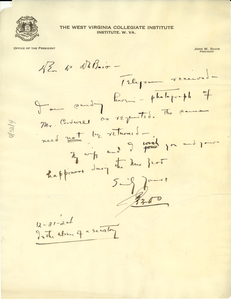 THE WEST VIRGINIA COLLEGIATE INSTITUTE
INSTITUTE, W. VA.
OFFICE OF THE PRESIDENT
JOHN W. DAVIS
PRESIDENT
Telegram received
I am sending herein photograph of
Mr. as requested. The same
need not be returned.
My wife and I wish you and yours
happiness during the New Year
Sincerely Yours
12-31-26
In the absence of a secretary